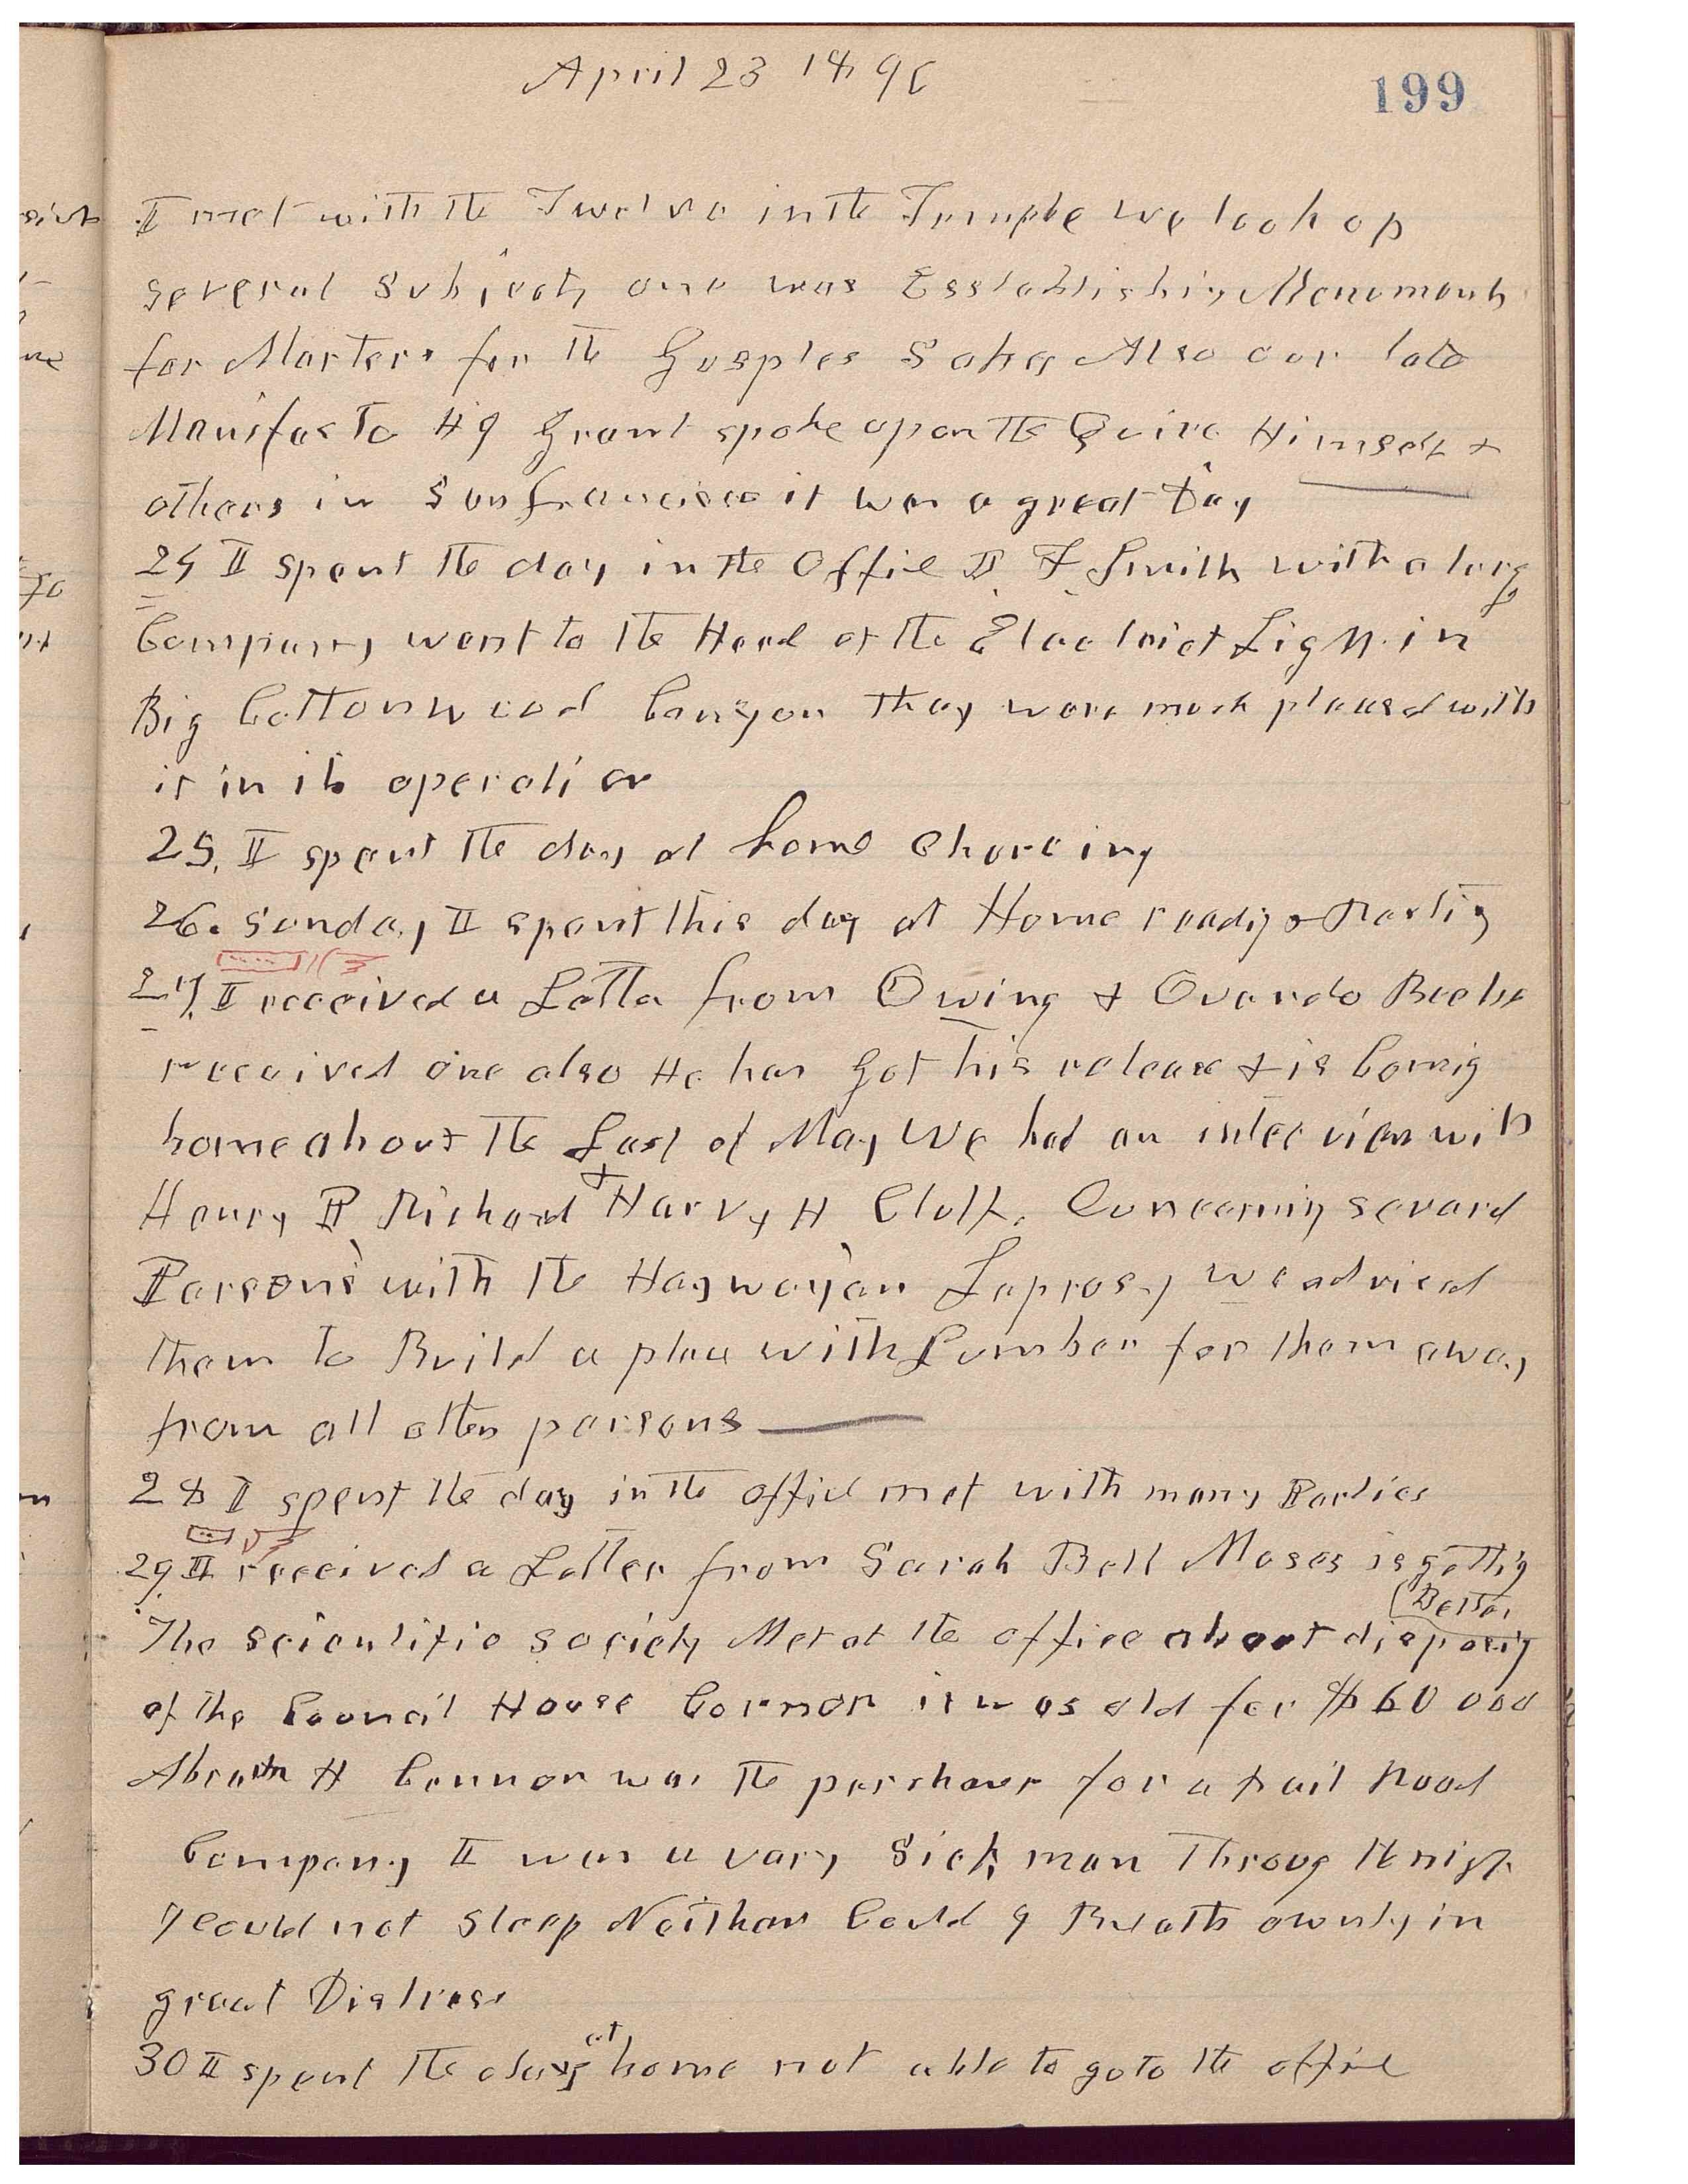 April 23 1896
199
I met with the Twelve in the Temple we took up
several Subjects one was Esstablishing Monomonts
for Marters for the Gosples Sakes Also our late
Manifasto H J Grant spoke upon the Quire Himself &
others in Sanfrancisco it was a great Day
24 I spent the day in the Office J F Smith with a larg
Company went to the Head of the Electrict Light in
Big Cottonwood Canyon They were much pleased with
it in its operation
25. I spent the day at home Choreing
26. Sunday I spent this day at Home readig & Restig
27. I received a Letter from Owing & Ovando Beebe
received one also He has Got his release & is Comig
home about the Last of May We had an inteerview with
Henry P Richard & Harvy H Cluff. Concerning several
Persons with the Haywayan Leprosy we advised
them to Build a place with Lumber for them away
from all other persons
28 I spent the day in the office met with many Parties
29 I received a Letter from Sarah Bell Moses is gettig
(Better
The scientific society Met at the office about disposig
of the Council House Cornor it was old for $60 000
Abram H Cannon was the perchaser for a rail Road
Company I was a vary Sick man Throug the nigh
I could not Sleep Neithar Could I Breath ownly in
great Distress
30 I spent the day at home not able to go to the office